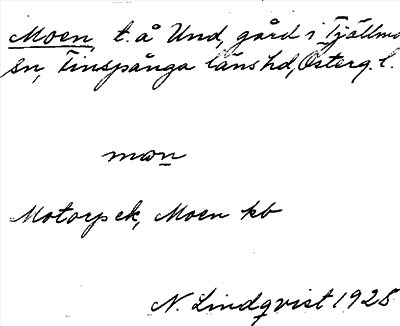 Moen, t. å Und, gård i Tjällmo
sn, Finspånga läns hd, Österg. l.
mon
Motorp ek, Moen kb
N. Lindqvist 1925